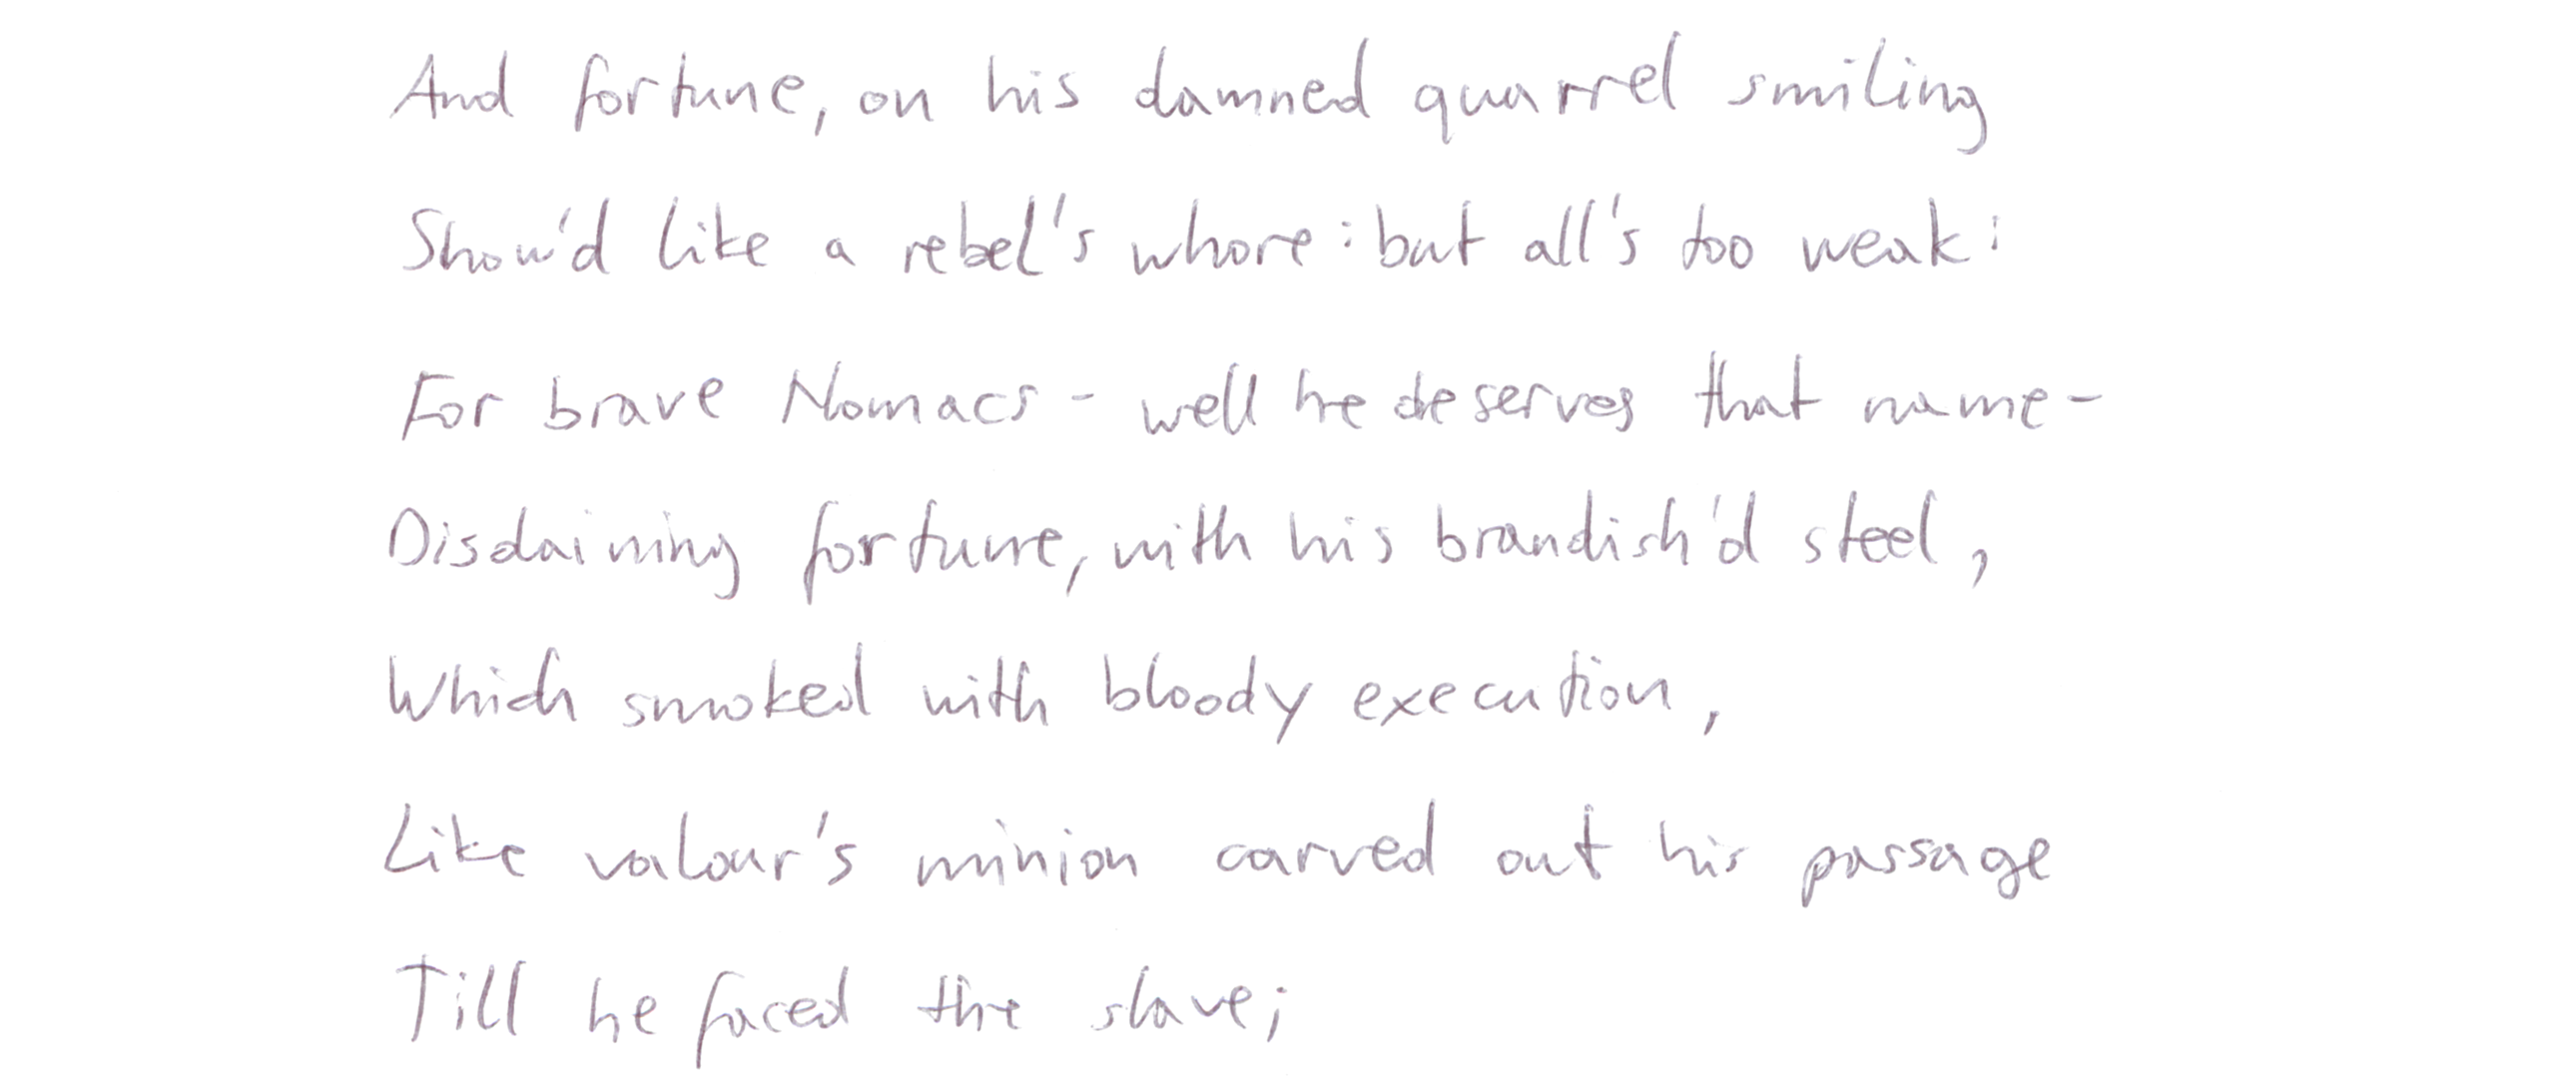 And fortune, on his damned quarrel smiling
Show'd like a rebel's whore: but all's too weak:
For brave Nomacs - well he deserves that name -
Disdaining fortune, with his brandish'd steel,
Which smoked with bloody execution,
Like valour's minion carved out his passage
Till he faced the slave;